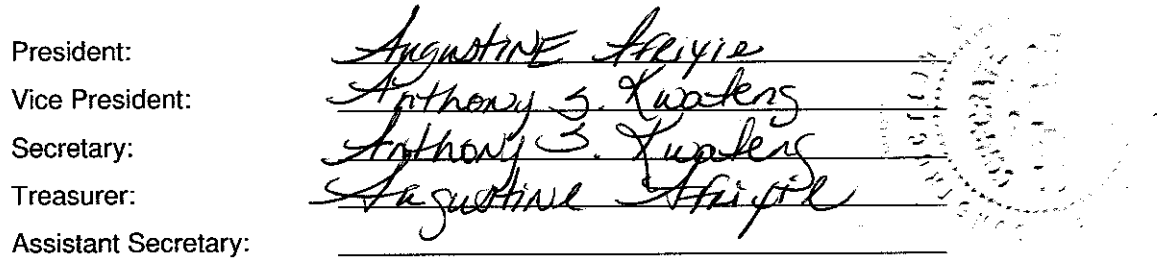 President: AugustiNE Afriyie
Vice President: Anthony S. Kwateng
Secretary: Anthony S. Kwateng
Treasurer: Augustine Afriyie
Assistant Secretary: